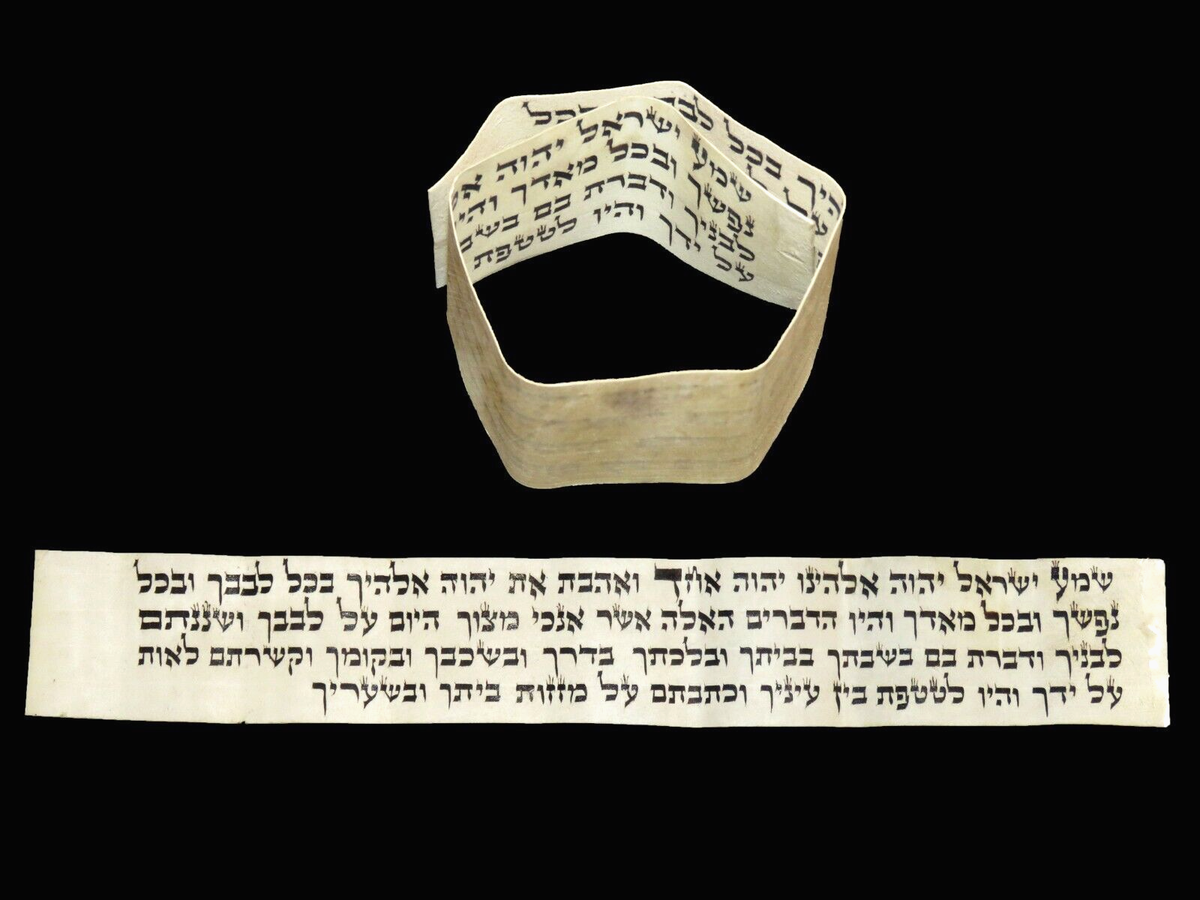 בכל
שמע ישראל יהוה
נפשך ובכל מאדך
לבניך ודברת בם
על ידך והיו לטטפת
שמע ישראל יהוה אלהינו יהוה אחד ואהבת את יהוה אלהיך בכל לבבך ובכל
נפשך ובכל מאדך והיו הדברים האלה אשר אנכי מצוך היום על לבבך ושננתם
לבניך ודברת בם בשבתך בביתך ובלכתך בדרך ובשכבך ובקומך וקשרתם לאות
על ידך והיו לטטפת בין עיניך וכתבתם על מזזות ביתך ובשעריך